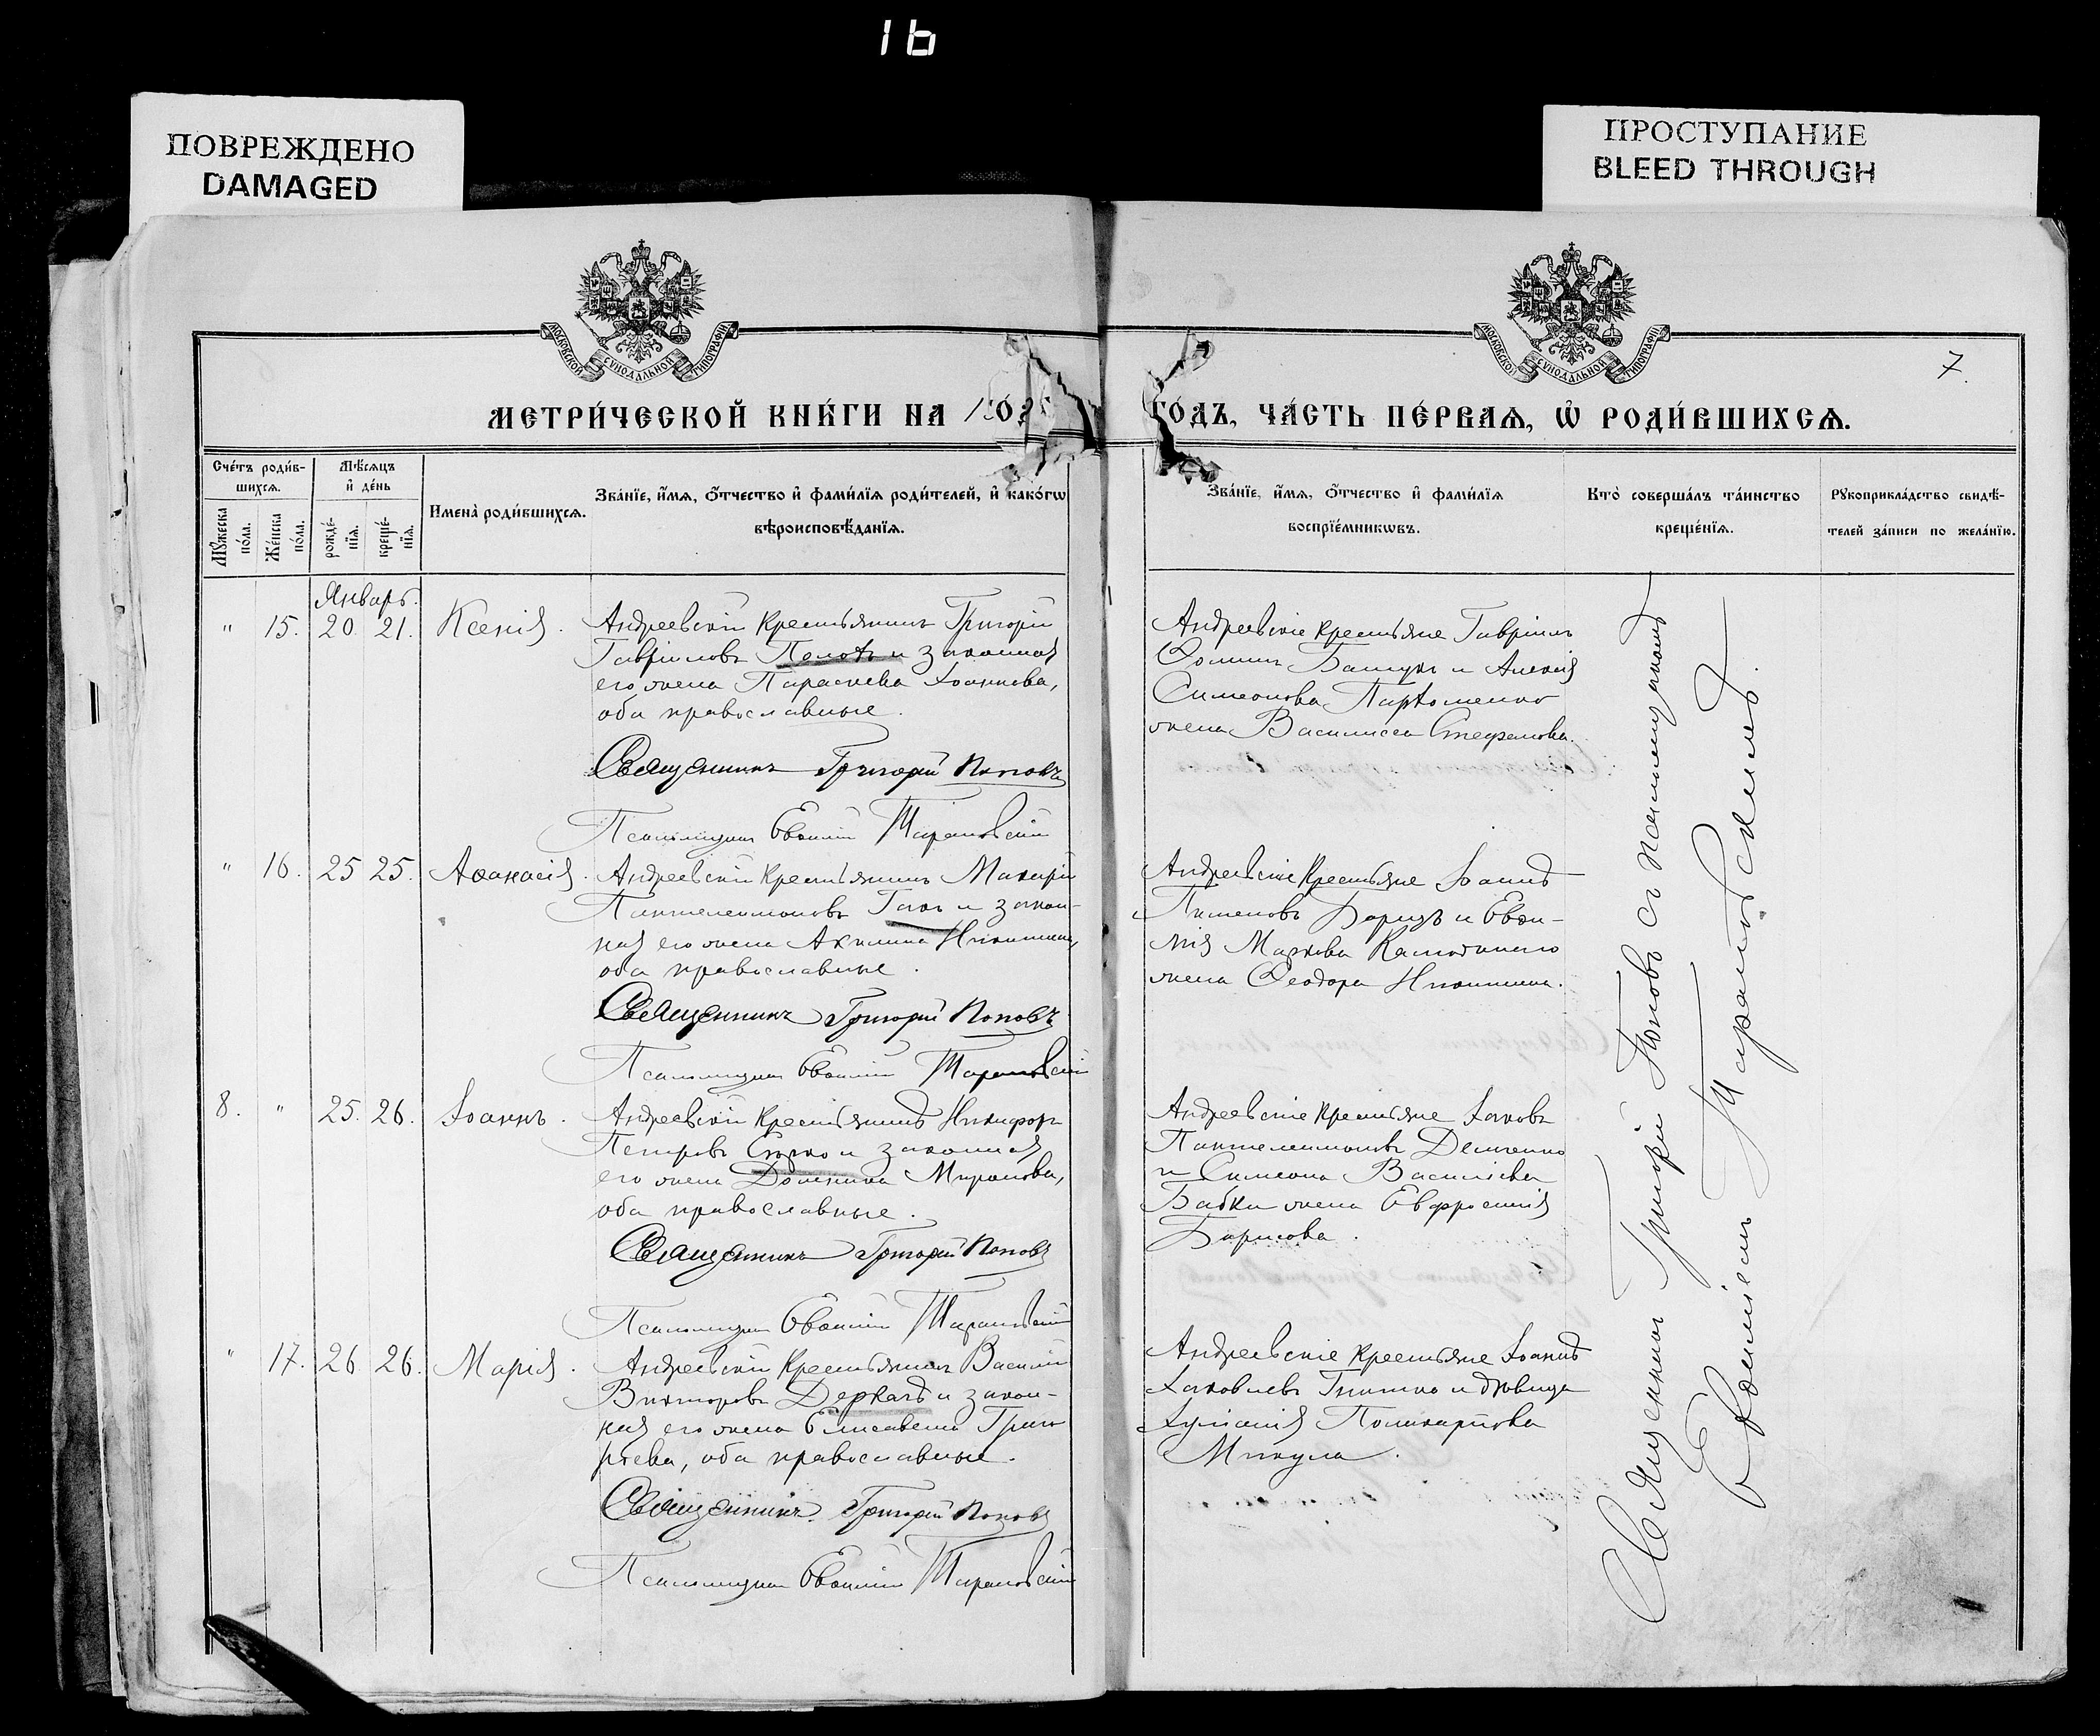 16
ПОВРЕЖДЕНО
DAMAGED
ПРОСТУПАНИЕ
BLEED THROUGH
МОСКОВСКОЙ СѴНОДАЛЬНОЙ ТИПОГРАФІИ
МОСКОВСКОЙ СѴНОДАЛЬНОЙ ТИПОГРАФІИ
7.
МЕТРИ́ЧЕСКОЙ КНИ́ГИ НА
ГО́ДЪ, ЧА́СТЬ ПЕ́РВАЯ, Ѡ РОДИ́ВШИХСЯ.
Сче́тъ роди́в-
шихся.
Мѣ́сяцъ
и҆ де́нь
Мꙋ́жеска
по́ла.
Же́нска
по́ла.
рожде́-
нїя.
креще́-
нїя.
Имена̀ роди́вшихся.
Зва́нїе, и҆́мя, ѻ҆́тчество и҆ фами́лїя роди́телей, и҆ како́гѡ
вѣроисповѣ́данїя.
Зва́нїе, и҆́мя, ѻ҆́тчество и҆ фами́лїя
воспрїе́мникѡвъ.
Кто̀ соверша́лъ та́инство
креще́нїя.
Рꙋкоприкла́дство свидѣ́-
телей за́писи по жела́нїю.
Январь.
" 15. 20. 21. Ксенія.
Андреевскій крестьянинъ Григорій
Гавриловъ и законная
его жена Параскева Іоаннова,
оба православные.
Священникъ Григорій Поповъ
Псаломщикъ Евѳимій Тарановскій
Андреевскіе крестьяне Гавріилъ
Ѳоминъ и
Симеонова Пархоменко
жена Василисса Стефанова.
" 16. 25 25. Аѳанасій.
Андреевскій крестьянинъ Макарій
Пантелеимоновъ и закон-
ная его жена Акилина Никитина,
оба православные.
Священникъ Григорій Поповъ
Псаломщикъ Евѳимій Тарановскій
Андреевскіе крестьяне Іоаннъ
Пименовъ и Евѳи-
мія Маркова
жена Ѳеодора Никитина.
8. " 25. 26. Іоаннъ.
Андреевскій крестьянинъ Никифоръ
Петровъ и законная
его жена Домникія Миронова,
оба православные.
Священникъ Григорій Поповъ
Псаломщикъ Евѳимій Тарановскій
Андреевскіе крестьяне Іаковъ
Пантелеимоновъ Демченко
и Симеона Васильева
Бабки жена Евфросинія
Борисова.
" 17. 26 26. Марія.
Андреевскій крестьянинъ Василій
Викторовъ Деркачъ и закон-
ная его жена Елисавета Григо
рьева, оба православные.
Священникъ Григорій Поповъ
Псаломщикъ Евѳимій Тарановскій
Андреевскіе крестьяне Іоаннъ
Іаковлевъ и дѣвица
Іуліанія Поликарпова
Микула.
Священникъ Григорій Поповъ съ псаломщикомъ
Евѳиміемъ Тарановскимъ.